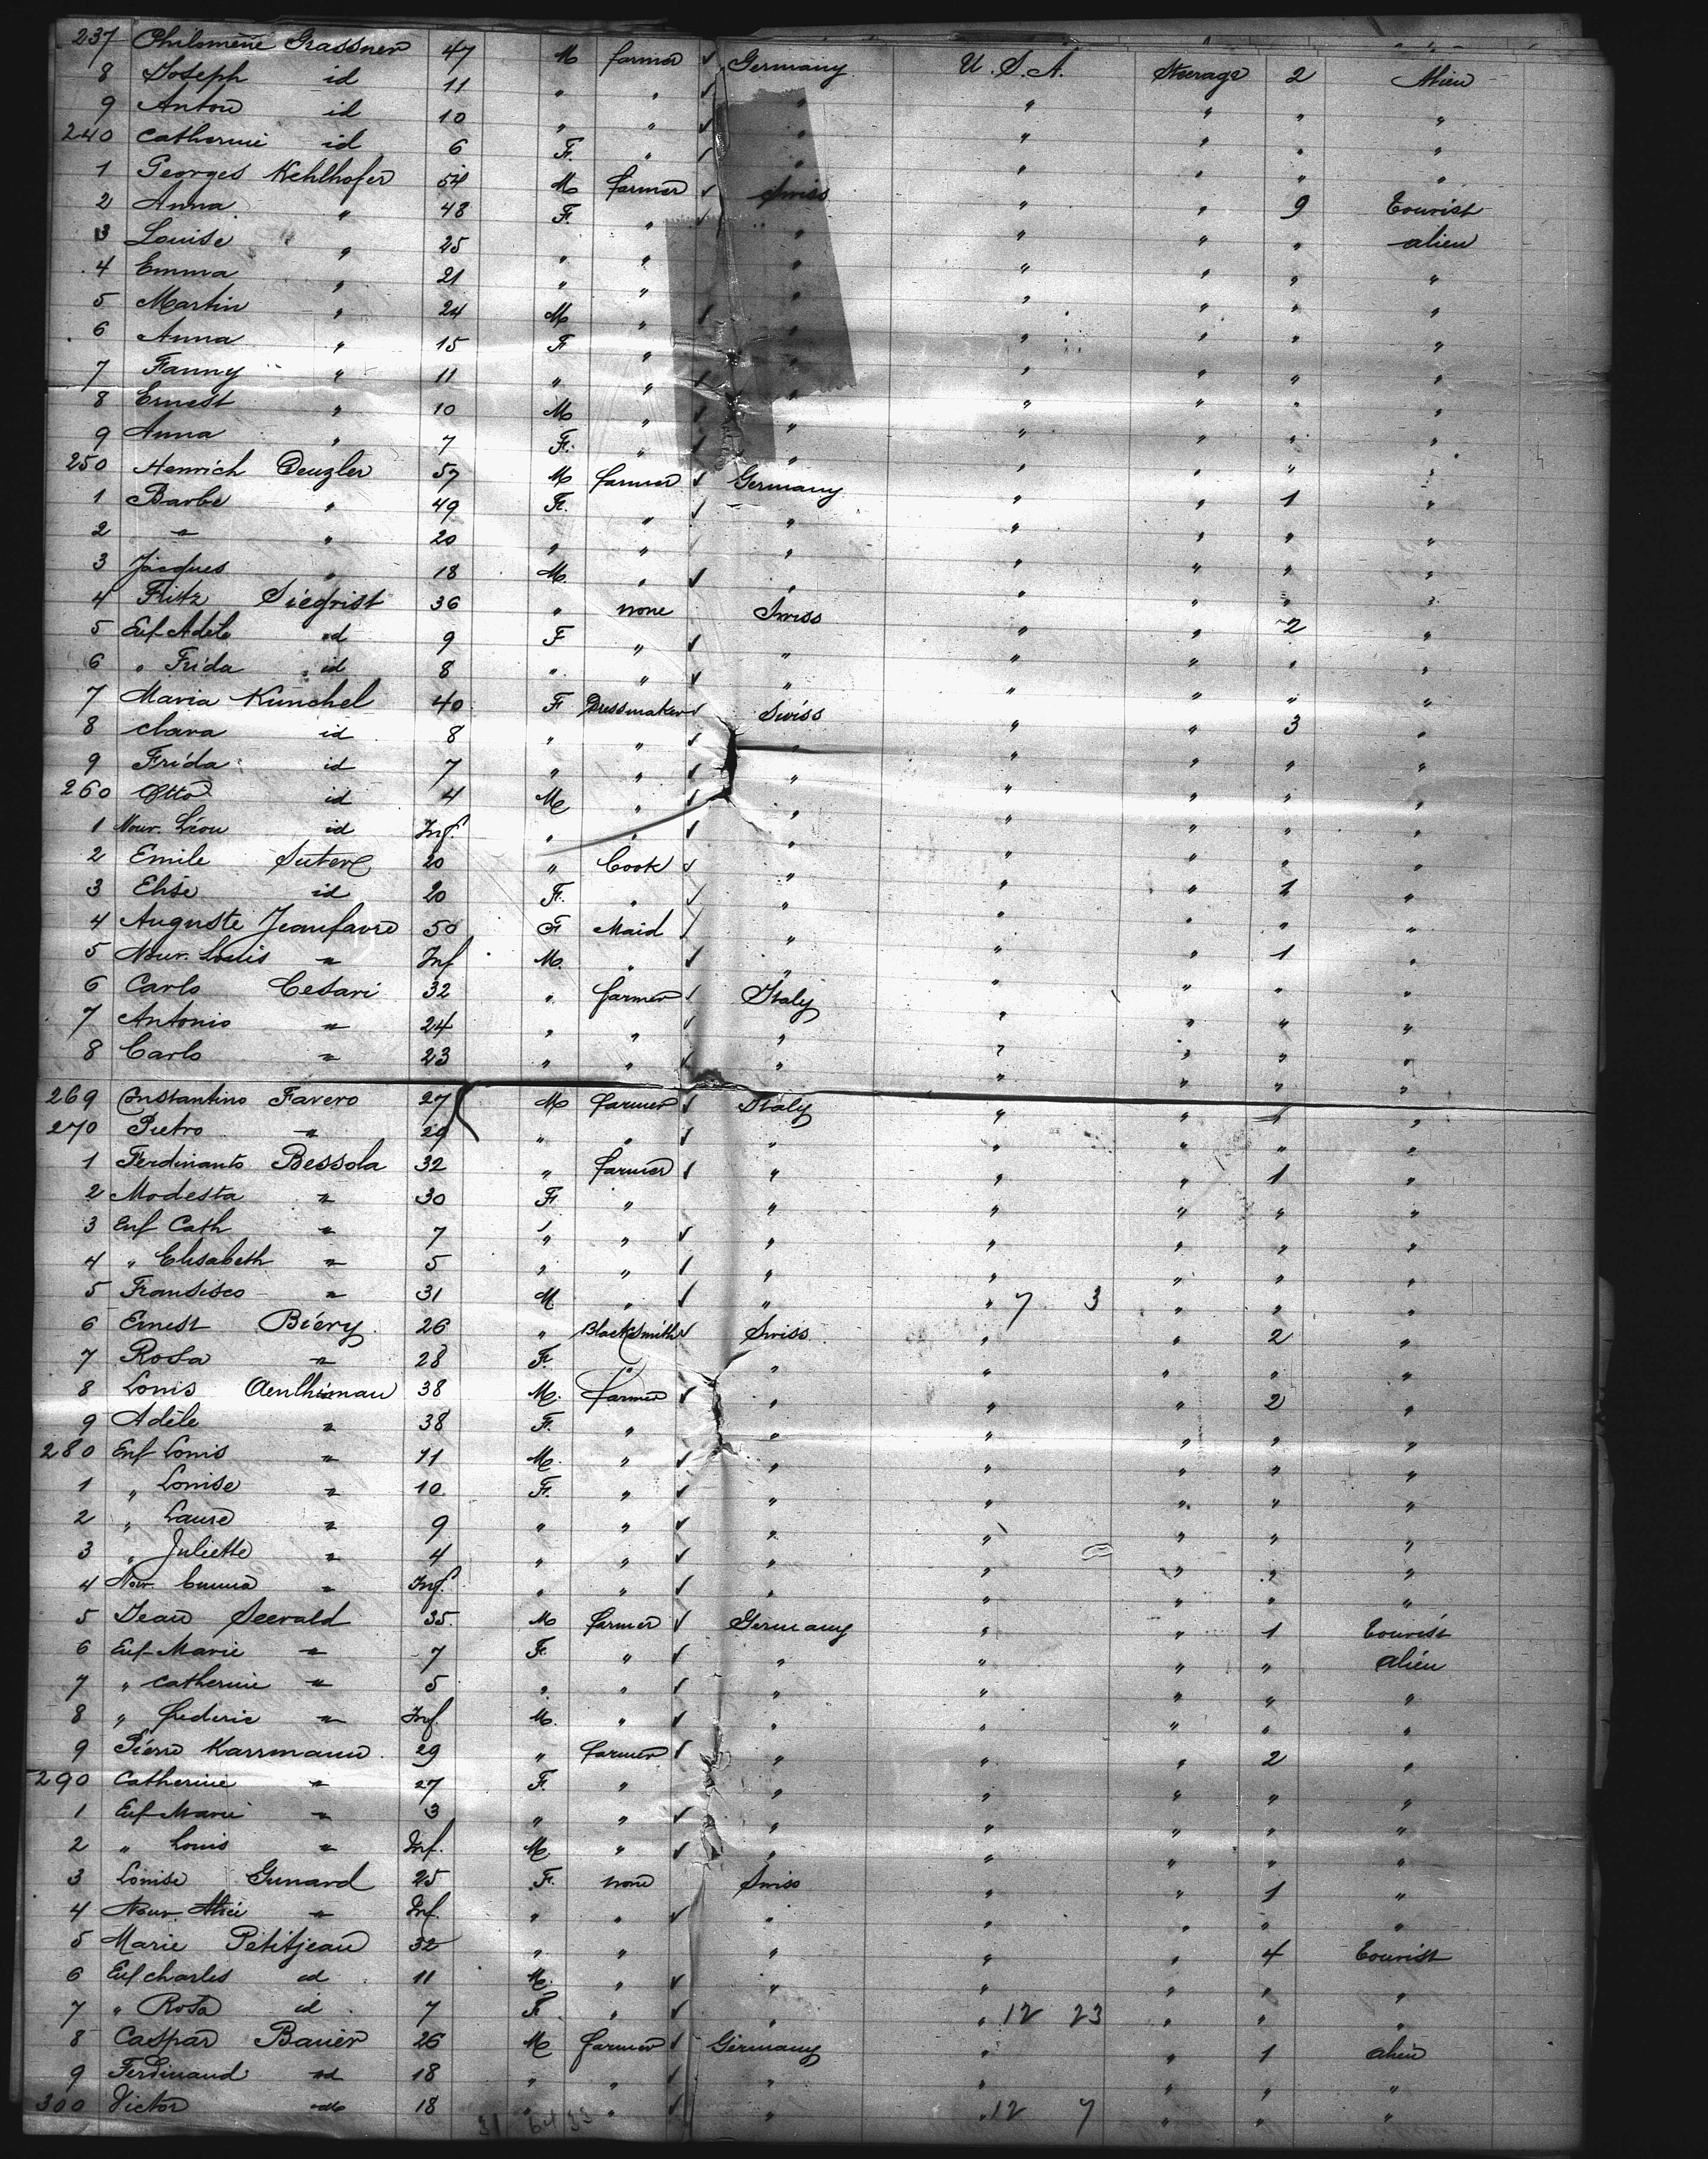 237 Philomène Grassner 47 M farmer ✓ Germany U.S.A. Steerage 2 Alien
8 Joseph id 11 " " ✓ " " " " "
9 Anton id 10 " " ✓ " " " " "
240 Catherine id 6 F. " ✓ " " " " "
1 Georges Kehlhofer 54 M farmer ✓ Swiss " " 9 Tourist
2 Anna " 48 F. " ✓ " " " " alien
3 Louise " 25 " " " " " " "
4 Emma " 21 " " " " " " "
5 Martin " 24 M " ✓ " " " " "
6 Anna " 15 F " " " " " "
7 Fanny " 11 " " ✓ " " " " "
8 Ernest " 10 M " ✓ " " " " "
9 Anna " 7 F. " ✓ " " " " "
250 Henrich Denzler 57 M farmer ✓ Germany " " 1 "
1 Barbe " 49 F. " ✓ " " " " "
2 " " 20 " " " " " " "
3 Jacques " 18 M. " ✓ " " " " "
4 Fritz Siegrist 36 " none Swiss " " 2 "
5 Enf Adele id 9 F " ✓ " " " " "
6 " Frida id 8 " " ✓ " " " " "
7 Maria Kunchel 40 F Dressmaker ✓ Swiss " " 3 "
8 Clara id 8 " " ✓ " " " " "
9 Frida id 7 " " ✓ " " " " "
260 Otto id 4 M " ✓ " " " " "
1 Nour. Léon id Inf. " " ✓ " " " " "
2 Emile Suter 20 " Cook ✓ " " " 1 "
3 Elise id 20 F. " ✓ " " " " "
4 Auguste Jeanfavre 50 F Maid ✓ " " " 1 "
5 Nour. Louis " Inf M. " ✓ " " " " "
6 Carlo Cesari 32 " farmer ✓ Italy " " " "
7 Antonio " 24 " " ✓ " " " " "
8 Carlo " 23 " " ✓ " " " " "
269 Constantino Favero 27 M farmer ✓ Italy " " 1 "
270 Pietro " 29 " " ✓ " " " " "
1 Ferdinanto Bessola 32 " farmer ✓ " " " 1 "
2 Modesta " 30 F. " " " " " "
3 Enf Cath " 7 " " ✓ " " " " "
4 " Elisabeth " 5 " " ✓ " " " " "
5 Fransisco " 31 M " ✓ " " 7 3 " " "
6 Ernest Biéry 26 " Blacksmith ✓ Swiss " " 2 "
7 Rosa " 28 F. " " " " " "
8 Louis 38 M. farmer ✓ " " " 2 "
9 Adèle " 38 F. " " " " " "
280 Enf Louis " 11 M. " ✓ " " " " "
1 " Louise " 10 F. " ✓ " " " " "
2 " Laure " 9 " " ✓ " " " " "
3 " Juliette " 4 " " ✓ " " " " "
4 Nour. Emma " Inf. " " ✓ " " " " "
5 Jean Seevald 35 M farmer ✓ Germany " " 1 Tourist
6 Enf Marie " 7 F. " ✓ " " " " alien
7 " Catherine " 5 " " ✓ " " " " "
8 " frederic " Inf. M. " ✓ " " " " "
9 Pierre Karrmann 29 " farmer ✓ " " " 2 "
290 Catherine " 27 F. " " " " " "
1 Enf Marie " 3 " " ✓ " " " " "
2 " Louis " Inf. M " ✓ " " " " "
3 Louise Gunard 25 F. none Swiss " " 1 "
4 Nour. Alice " Inf. " " ✓ " " " " "
5 Marie Petitjean 32 " " " " " 4 Tourist
6 Enf Charles id 11 M. " ✓ " " " " "
7 " Rosa id 7 F " ✓ " " 12 23 " " "
8 Caspar Bauer 26 M farmer ✓ Germany " " 1 alien
9 Ferdinand id 18 " " ✓ " " " " "
300 Victor id 18 " " ✓ " " 12 7 " " "